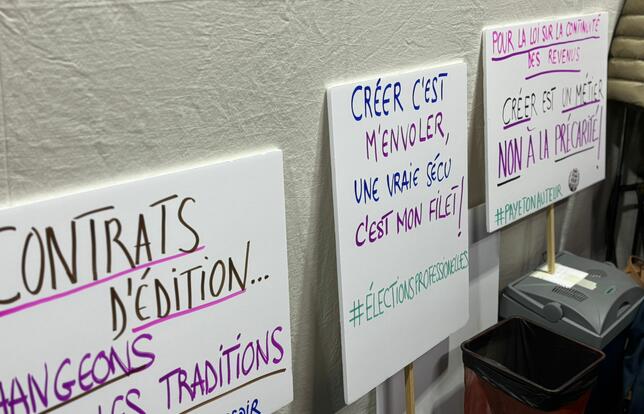 CONTRATS
D'ÉDITION...
CHANGEONS
LES TRADITIONS
CRÉER C'EST
M'ENVOLER,
UNE VRAIE SÉCU
C'EST MON FILET!
#ÉLECTIONSPROFESSIONELLES
POUR LA LOI SUR LA CONTINUITÉ
DES REVENUS
CRÉER EST UN MÉTIER
NON À LA PRÉCARITÉ!
#PAYETONAUTEUR